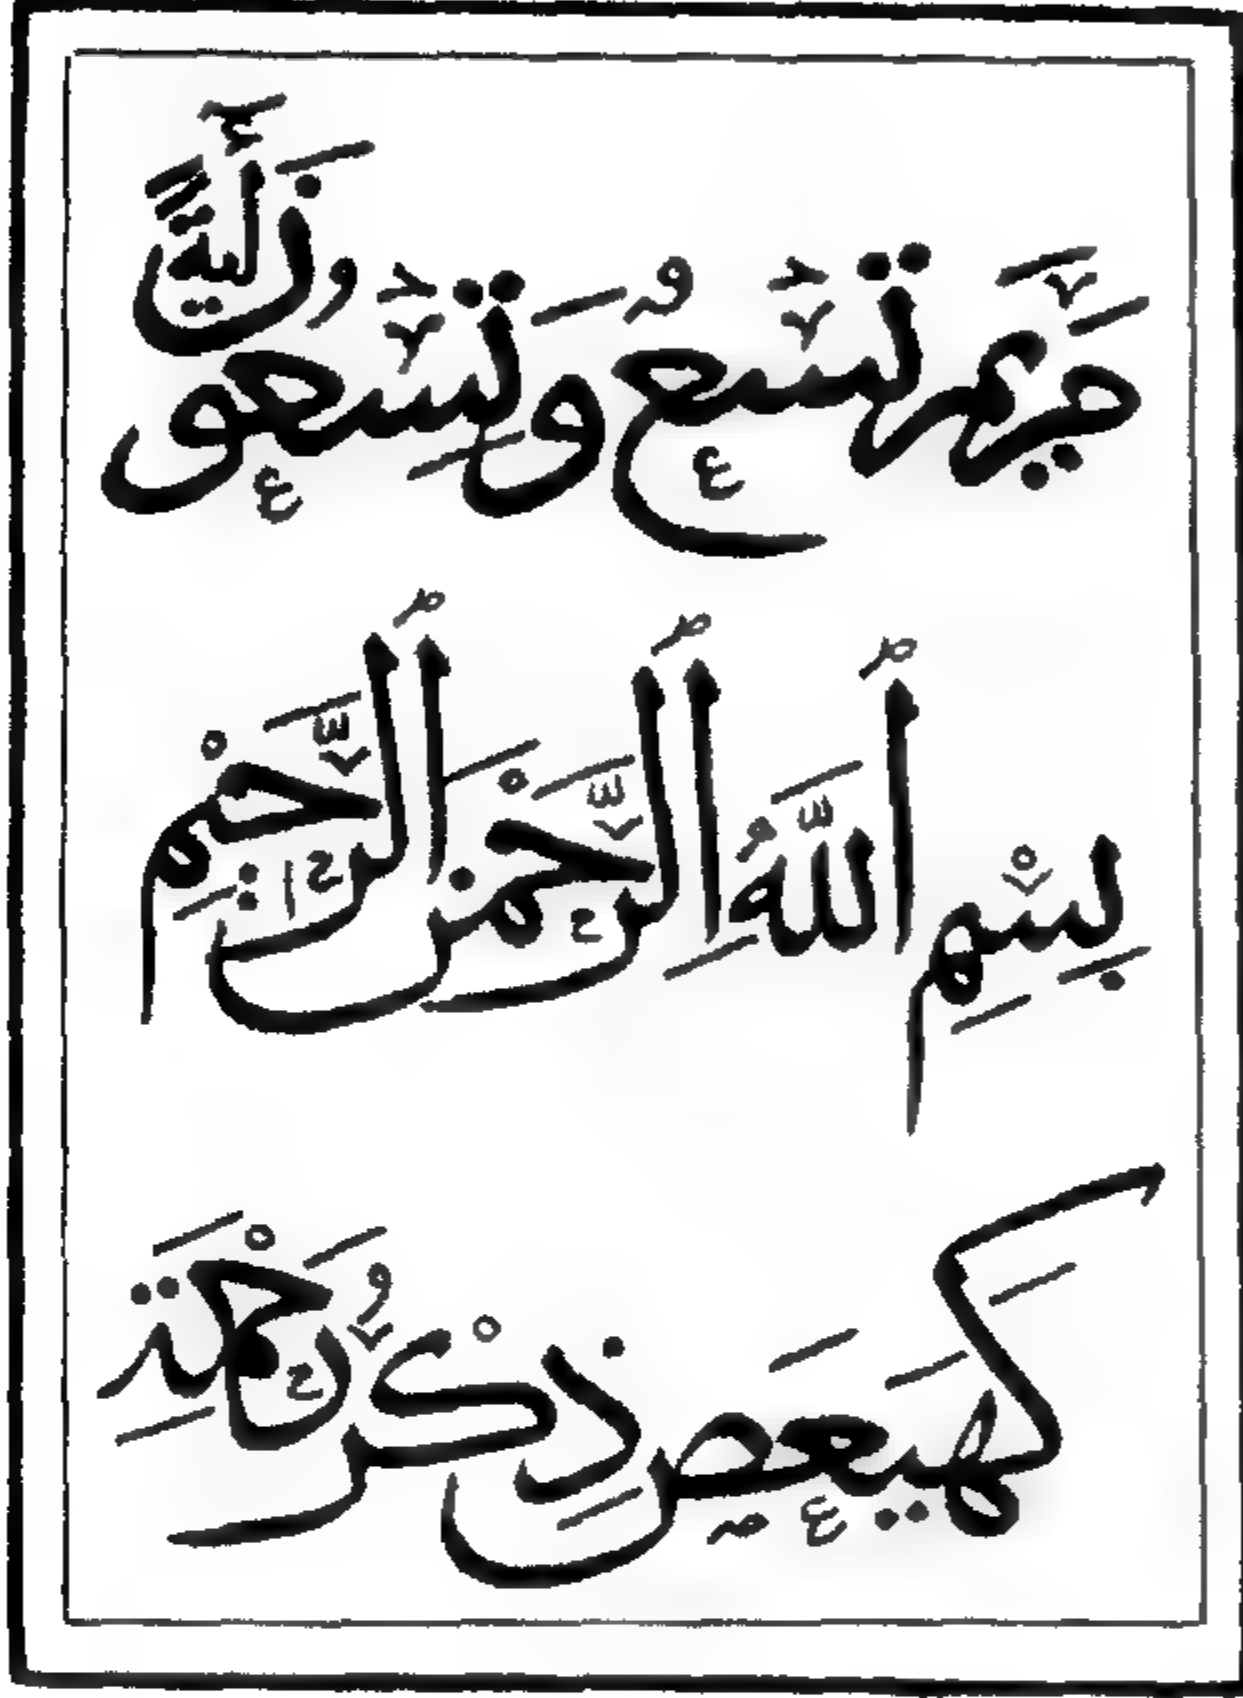 مَرْيَمَ تِسْعٌ وَتِسْعُونَ آيَةً
بِسْمِ اللَّهِ الرَّحْمَنِ الرَّحِيمِ
كَهَيَعَصِ ذِكْرُ رَحْمَتِ